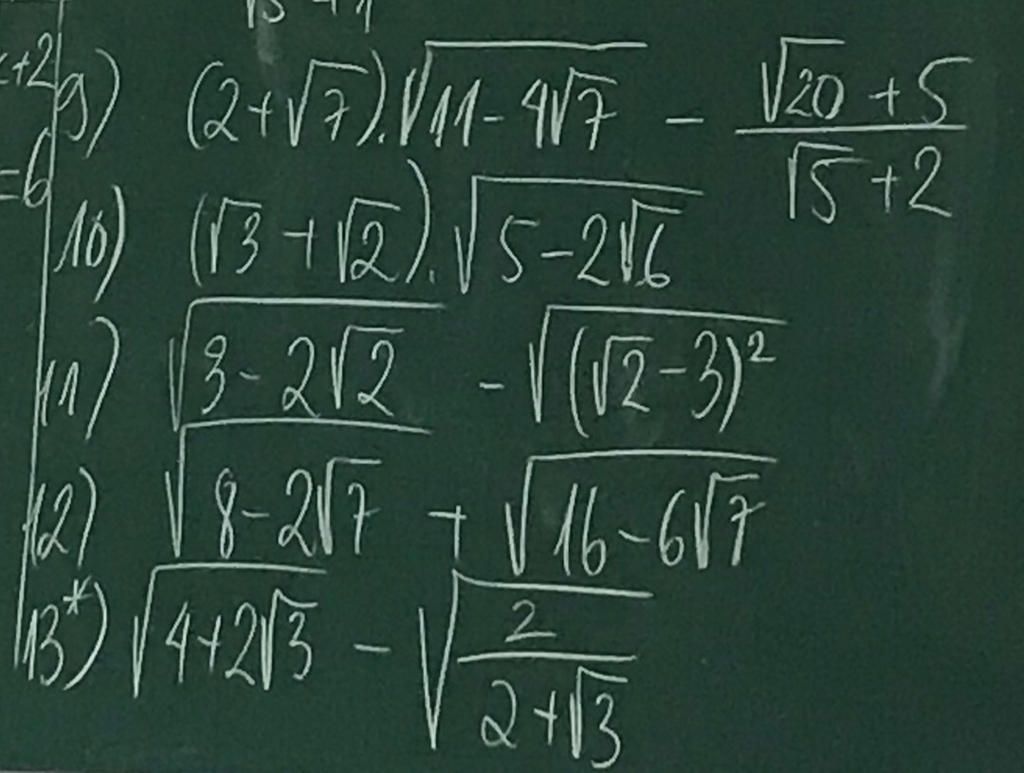 x+2
=6
9) (2+√7).√(11-4√7) - (√20+5)/(√5+2)
10) (√3+√2).√(5-2√6)
11) √(3-2√2) - √((√2-3)²)
12) √(8-2√7) + √(16-6√7)
13*) √(4+2√3) - √(2/(2+√3))